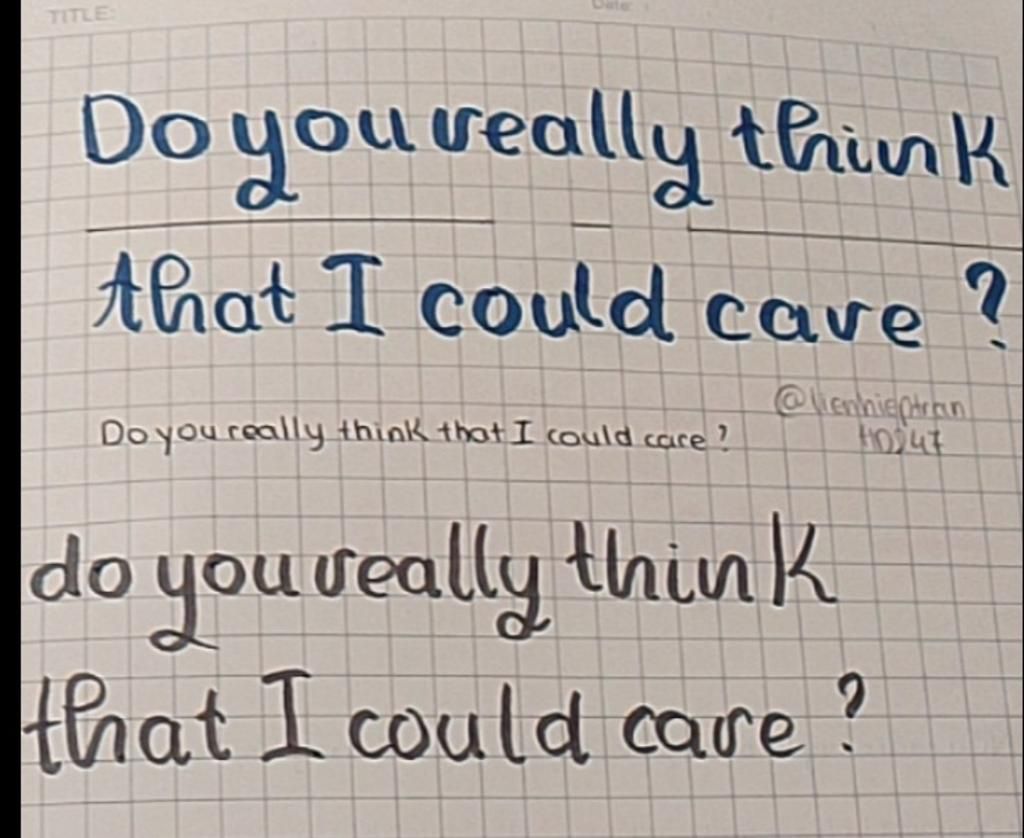 TITLE:
Date:
Do you really think
that I could care ?
@lienhieptran
Do you really think that I could care?
do you really think
that I could care ?